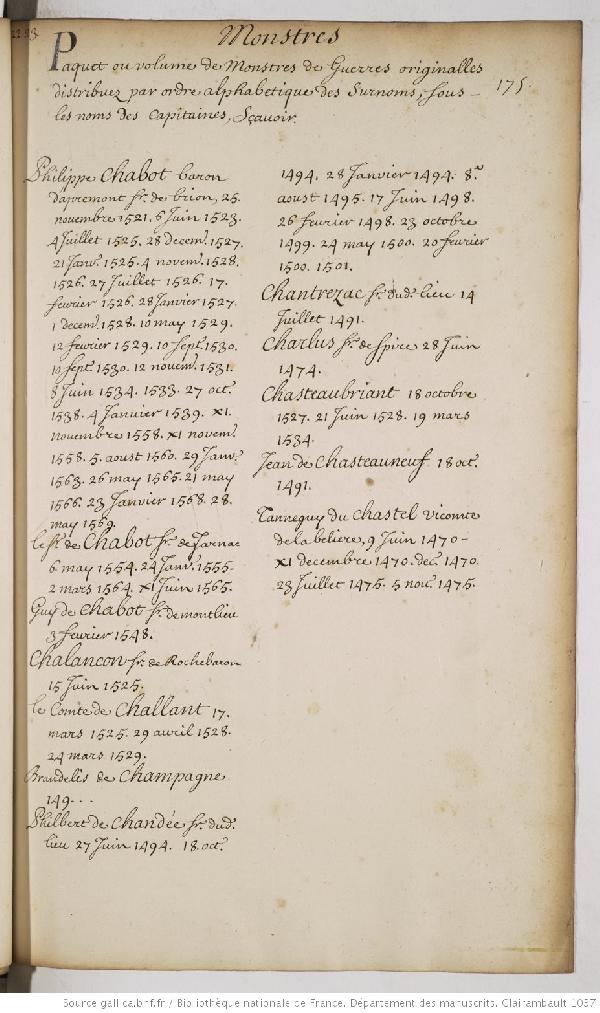 Monstres
Paquet ou volume de Monstres de Guerres originalles
distribuez par ordre alphabetique des Surnoms, sous
les noms des Capitaines, Sçavoir.
175.
Philippe Chabot baron
dapremont sr. de brion, 25.
novembre 1521. 6 Juin 1523.
4 Juillet 1525. 28 decemr. 1527.
21 Janvr. 1525. 4 novemr. 1528.
1526. 27 Juillet 1526. 17.
fevrier 1526. 28 Janvier 1527.
1 decemr. 1528. 10 may 1529.
12 fevrier 1529. 10 Septr. 1530.
10 sept. 1530. 12 novemr. 1531.
8 Juin 1534. 1533. 27 oct.
1538. 4 Janvier 1539. XI.
novembre 1558. XI novemr.
1558. 5. aoust 1560. 29 Janvr.
1563. 26 may 1565. 21 may
1566. 23 Janvier 1568. 28.
may 1569.
le sr. de Chabot sr. de Jarnac
6 may 1554. 24 Janvr. 1555.
2 mars 1564. XI Juin 1565.
Guy de Chabot sr. de montlieu
3 fevrier 1548.
Chalancon sr. de Rochebaron
15 Juin 1525.
le Comte de Challant 17.
mars 1525. 29 avril 1528.
24 mars 1529.
Brandelis de Champagne
149...
Philbert de Chandée sr. dud.
lieu 27 Juin 1494. 18 oct.
1494. 28 Janvier 1494. 8.
aoust 1495. 17 Juin 1498.
26 fevrier 1498. 23 octobre
1499. 24 may 1500. 20 fevrier
1500. 1501.
Chantrezac sr. dud. lieu 14
Juillet 1491.
Charlus sr. de spire 28 Juin
1474.
Chasteaubriant 18 octobre
1527. 21 Juin 1528. 19 mars
1534.
Jean de Chasteauneuf. 18 oct.
1491.
Tanneguy du Chastel vicomte
de la beliere, 9 Juin 1470-
XI decembre 1470. dec. 1470.
23 Juillet 1475. 5 nov. 1475.
Source gallica.bnf.fr / Bibliothèque nationale de France. Département des manuscrits. Clairambault 1037